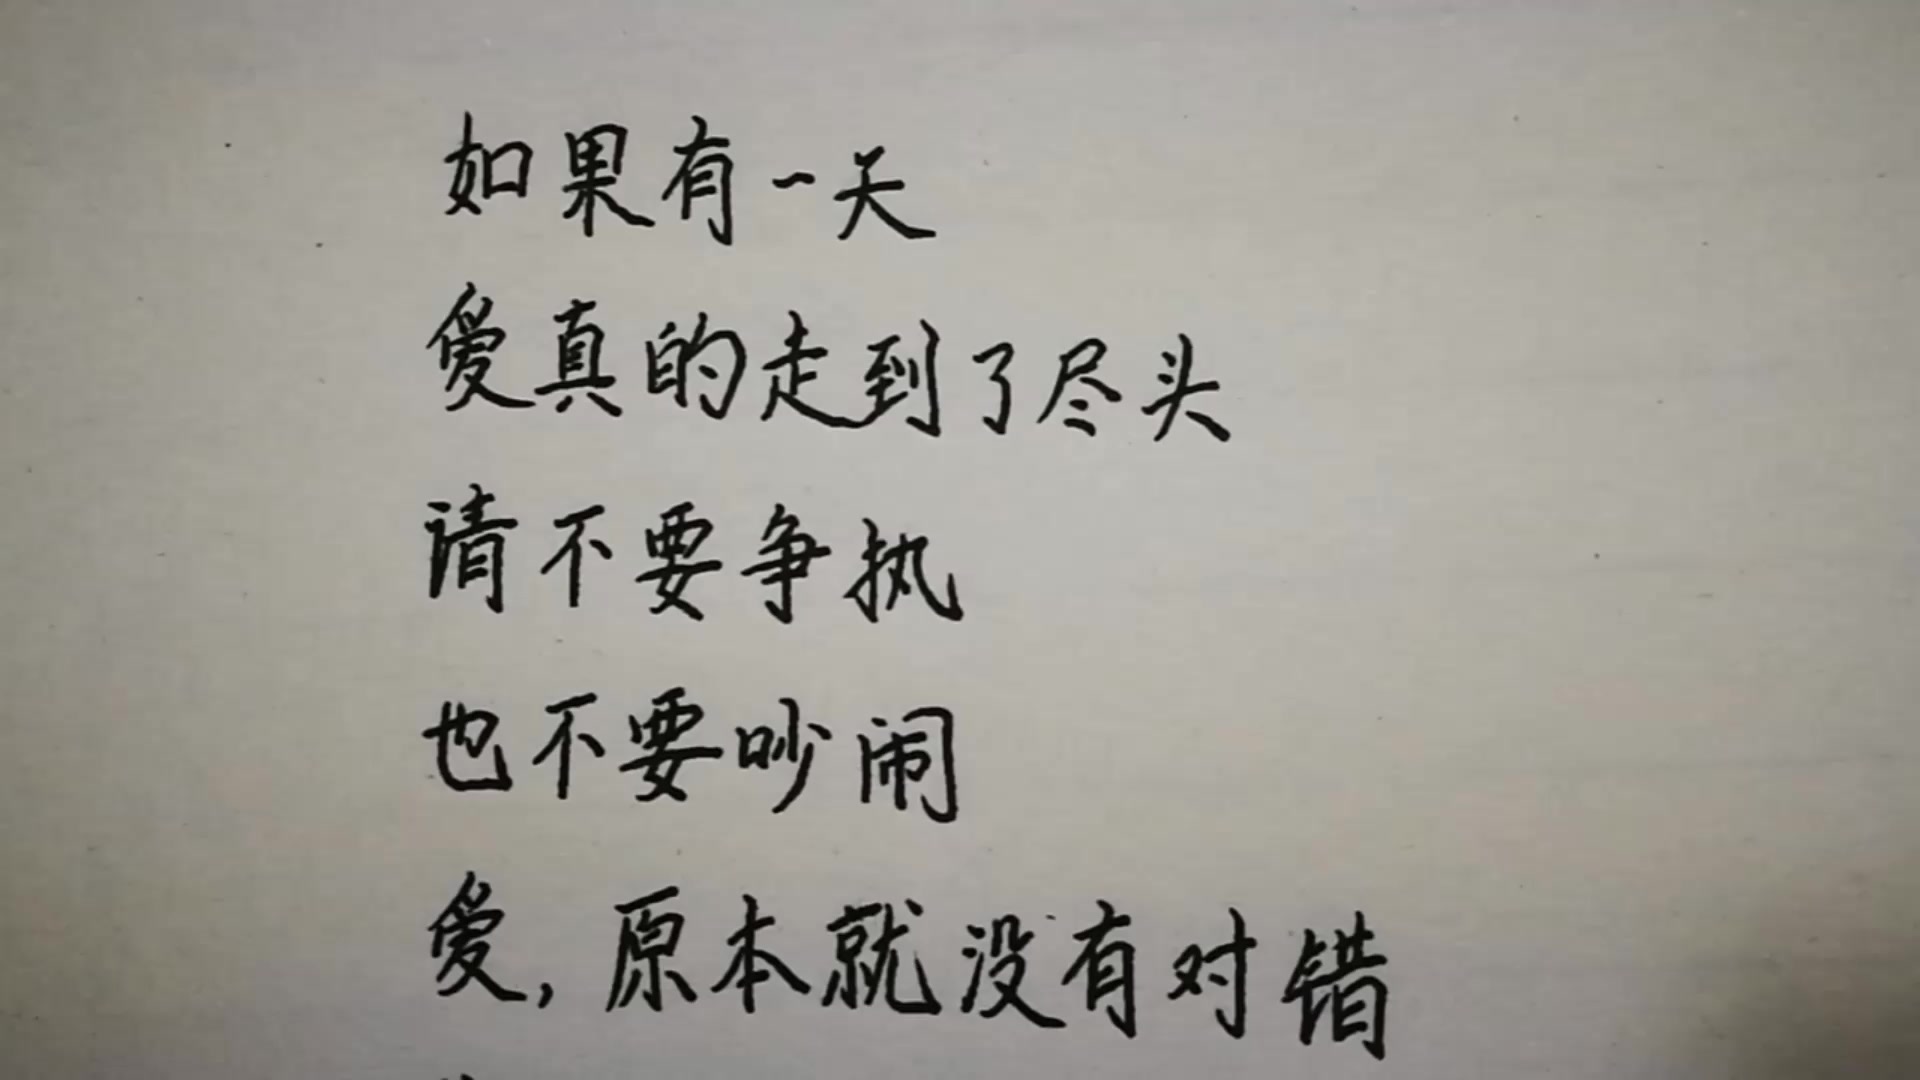 如果有一天
爱真的走到了尽头
请不要争执
也不要吵闹
爱,原本就没有对错